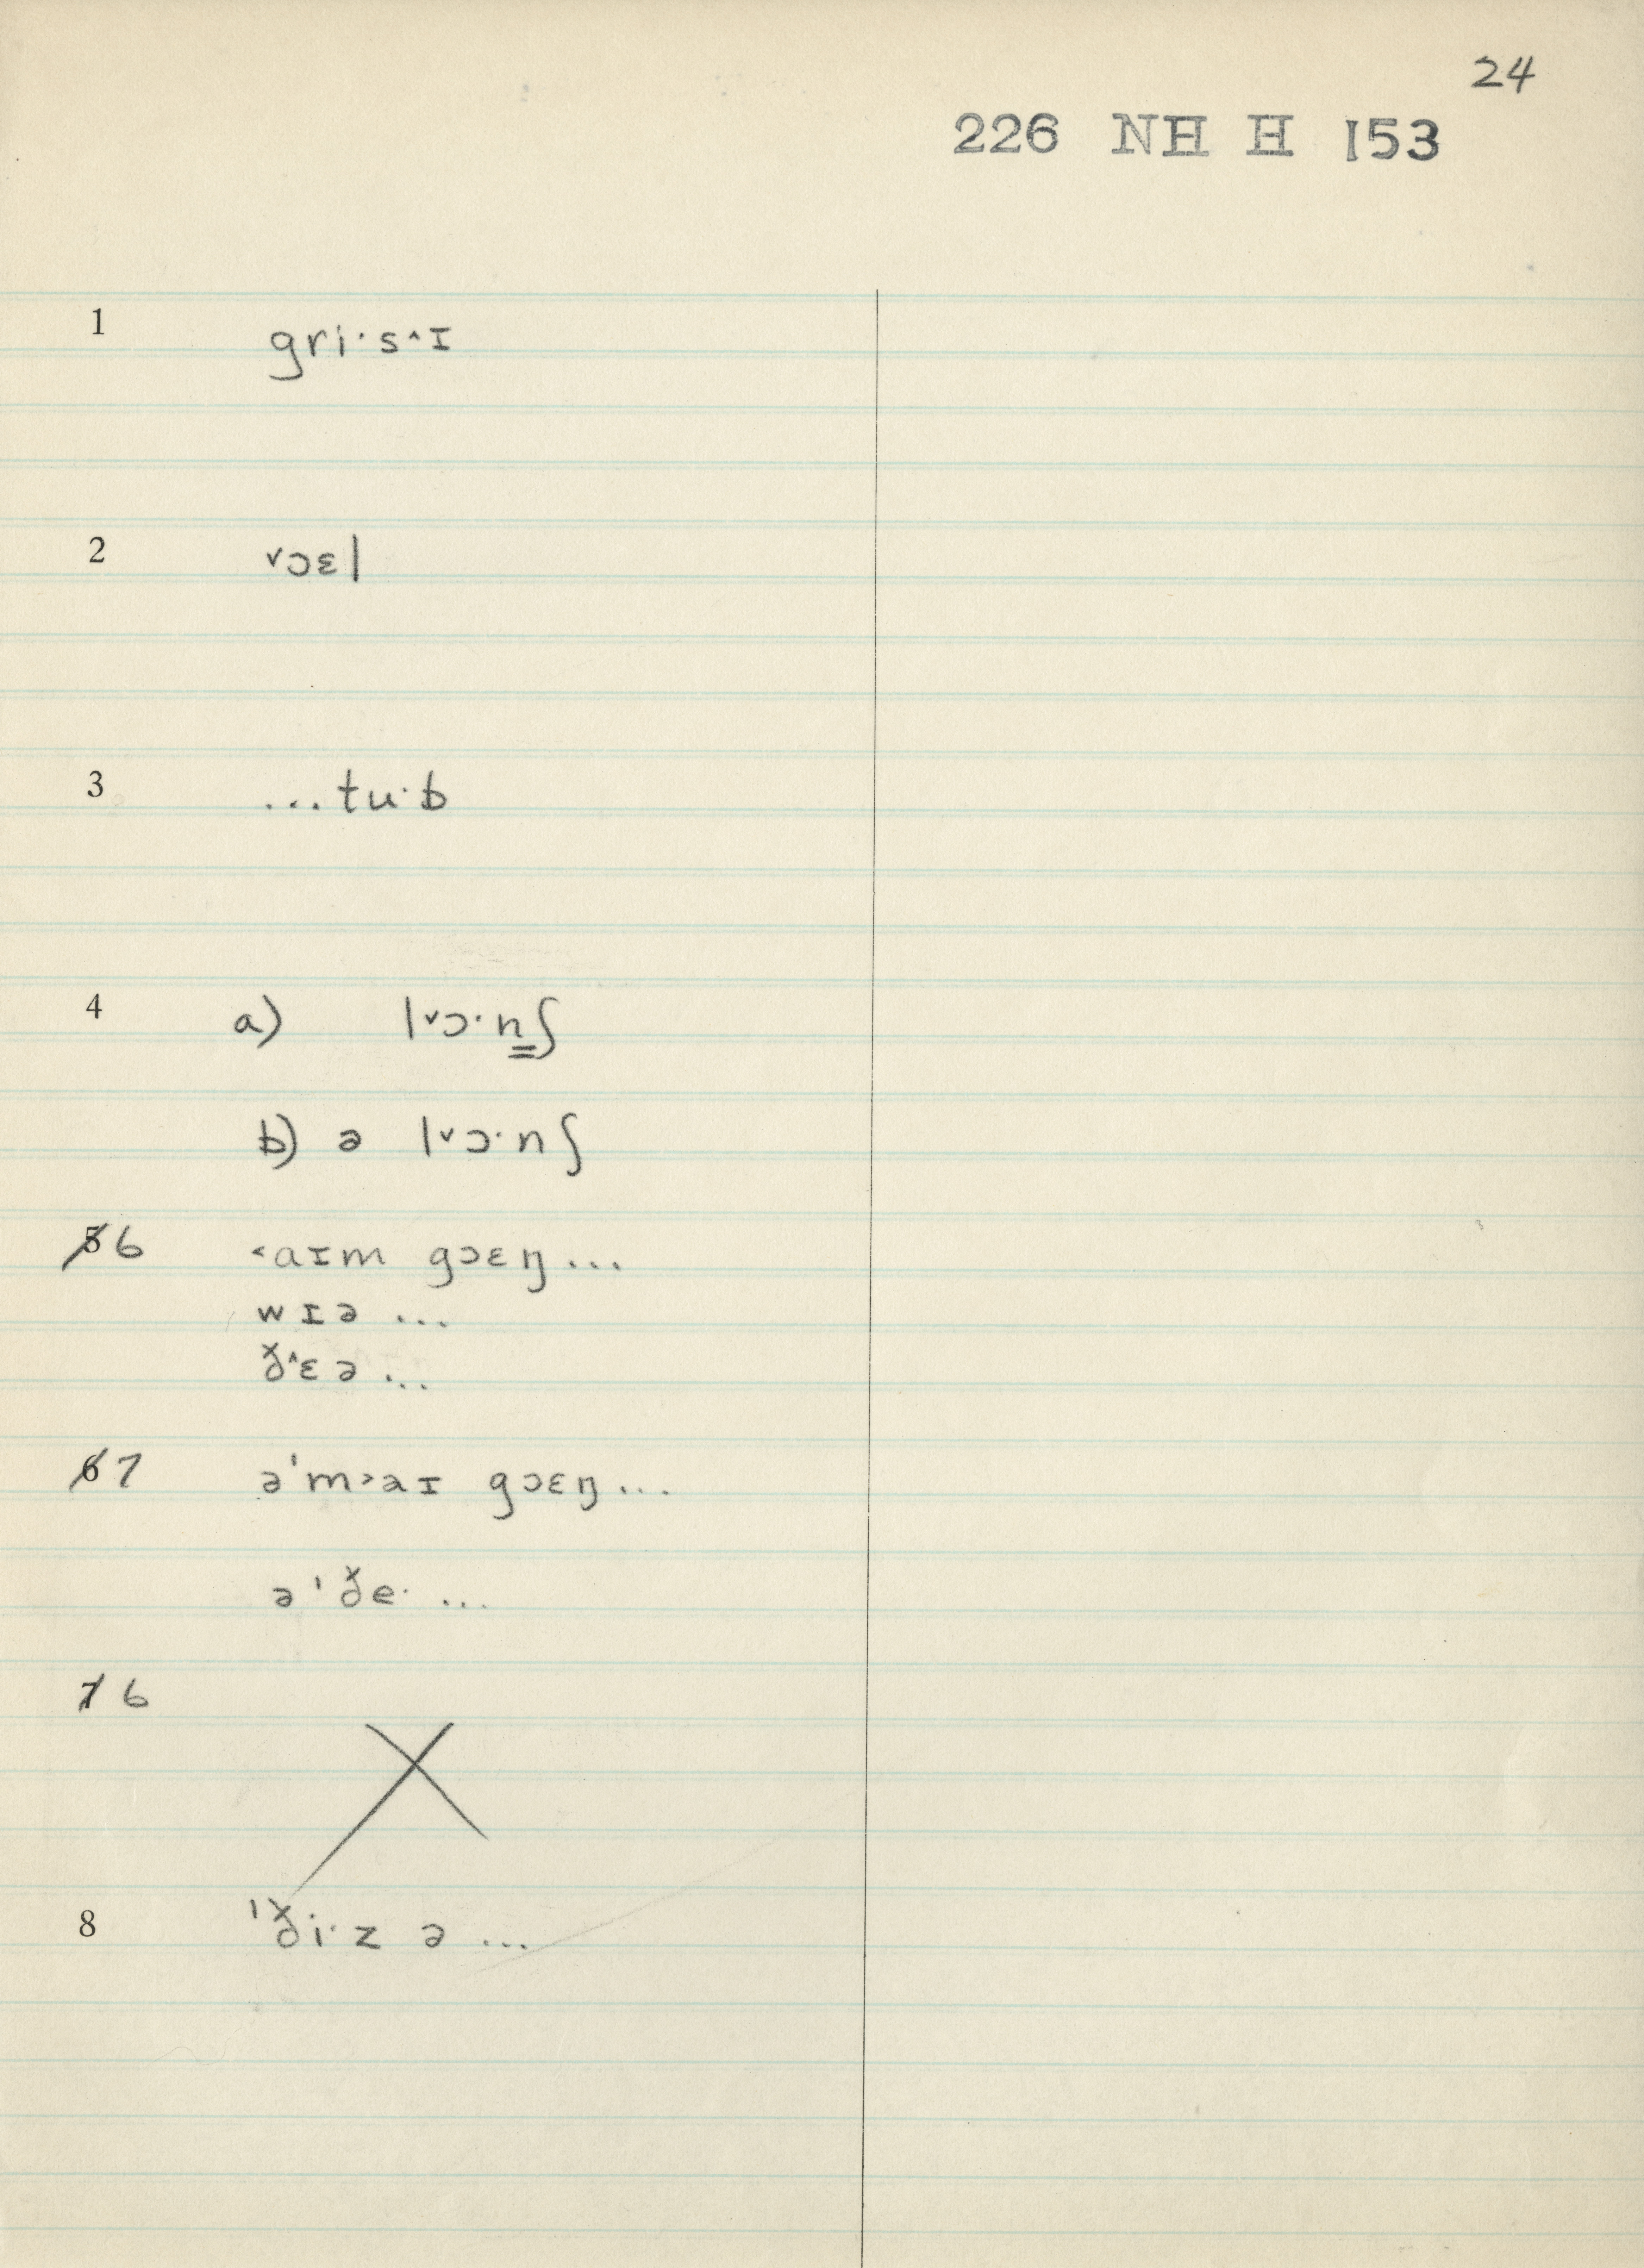 24
226 NH H 153
1 gri·s˄ɪ
2 ˅ɔɛl
3 ...tu·b
4 a) l˅ɔ·n̳ʃ
b) ə l˅ɔ·nʃ
5 6 ˂aɪm gɔɛŋ...
wɪə ...
ð˄ɛə ...
6 7 ə'm˃aɪ gɔɛŋ...
ə'ðe· ...
7 6
8 'ði·z ə ...